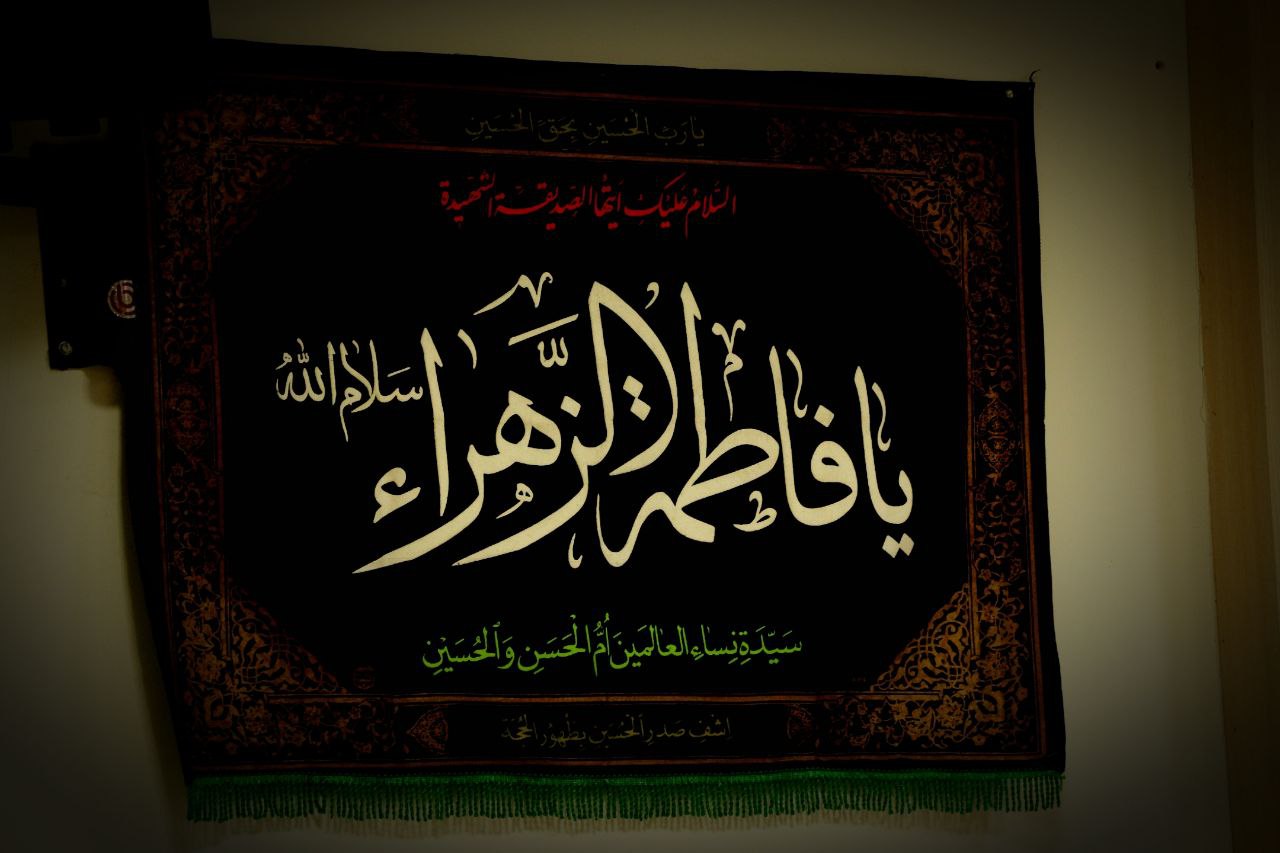 يا رَبَّ الْحُسَيْنِ بِحَقِّ الْحُسَيْنِ
السَّلامُ عَلَيْكِ أَيَّتُهَا الصِّدِيقَةُ الشَّهِيدَة
يا فاطمة الزهراء سَلامُ اللهُ
سَيِّدَةِ نِساءِ العالَمَينَ أُمُّ الْحَسَنِ وَالْحُسَيْنِ
اِشْفِ صَدرِ الْحُسَیْنِ بِظُهُورِ الحُجَّة